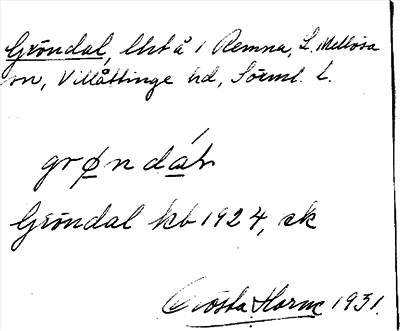 Gröndal, lht å i Remna, L. Mellösa
sn, Villåttinge hd, Sörml. l.
grøndáh
Gröndal kb 1924, ek
Gösta Harne 1931.